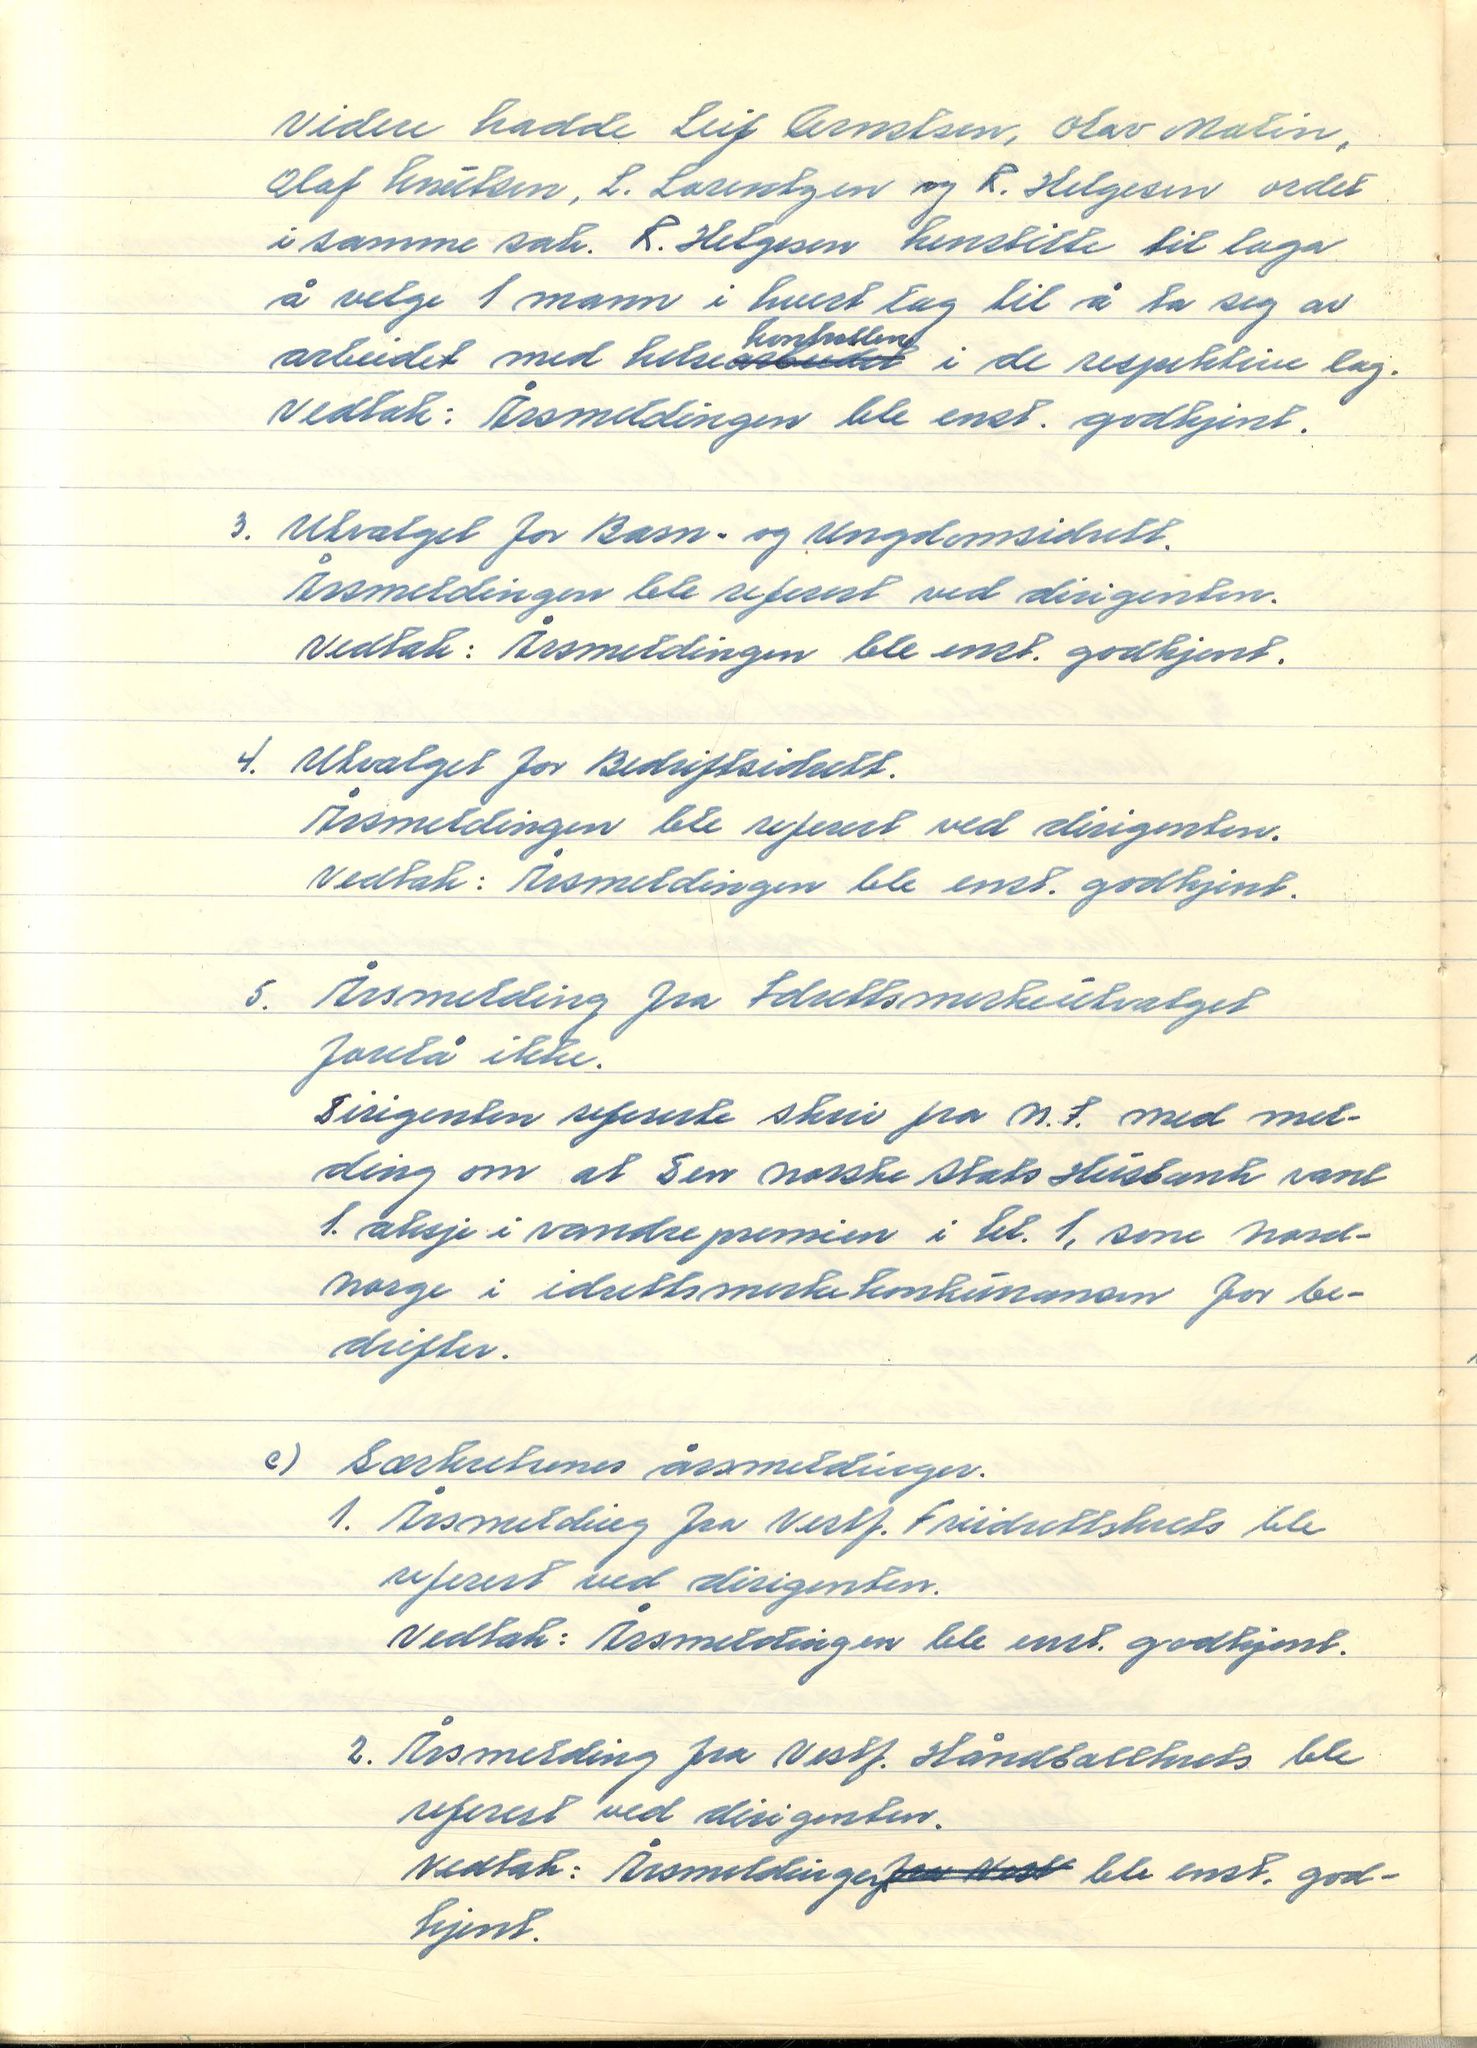 Videre hadde Leif Arntsen, Olav Matin,
Olaf Knutsen, L. Lorentzen og R. Helgesen ordet
i samme sak. R. Helgesen henstilte til laga
å velge 1 mann i hvert lag til å ta seg av
arbeidet med helsekontrollen i de respektive lag.
Vedtak: Årsmeldingen ble enst. godkjent.
3. Utvalget for Barn- og Ungdomsidrett.
Årsmeldingen ble referert ved dirigenten.
Vedtak: Årsmeldingen ble enst. godkjent.
4. Utvalget for Bedriftsidrett.
Årsmeldingen ble referert ved dirigenten.
Vedtak: Årsmeldingen ble enst. godkjent.
5. Årsmelding fra Idrettsmerkeutvalget
forelå ikke.
Dirigenten refererte skriv fra N.I. med mel-
ding om at Den norske Stats Husbank vant
1. aksje i vandrepremien i kl. 1, sone Nord-
norge i idrettsmerkekonkurransen for be-
drifter.
c) Særkretsenes årsmeldinger.
1. Årsmelding fra Vestf. Friidrettskrets ble
referert ved dirigenten.
Vedtak: Årsmeldingen ble enst. godkjent.
2. Årsmelding fra Vestf. Håndballkrets ble
referert ved dirigenten.
Vedtak: Årsmeldingen fra Vest ble enst. god-
kjent.